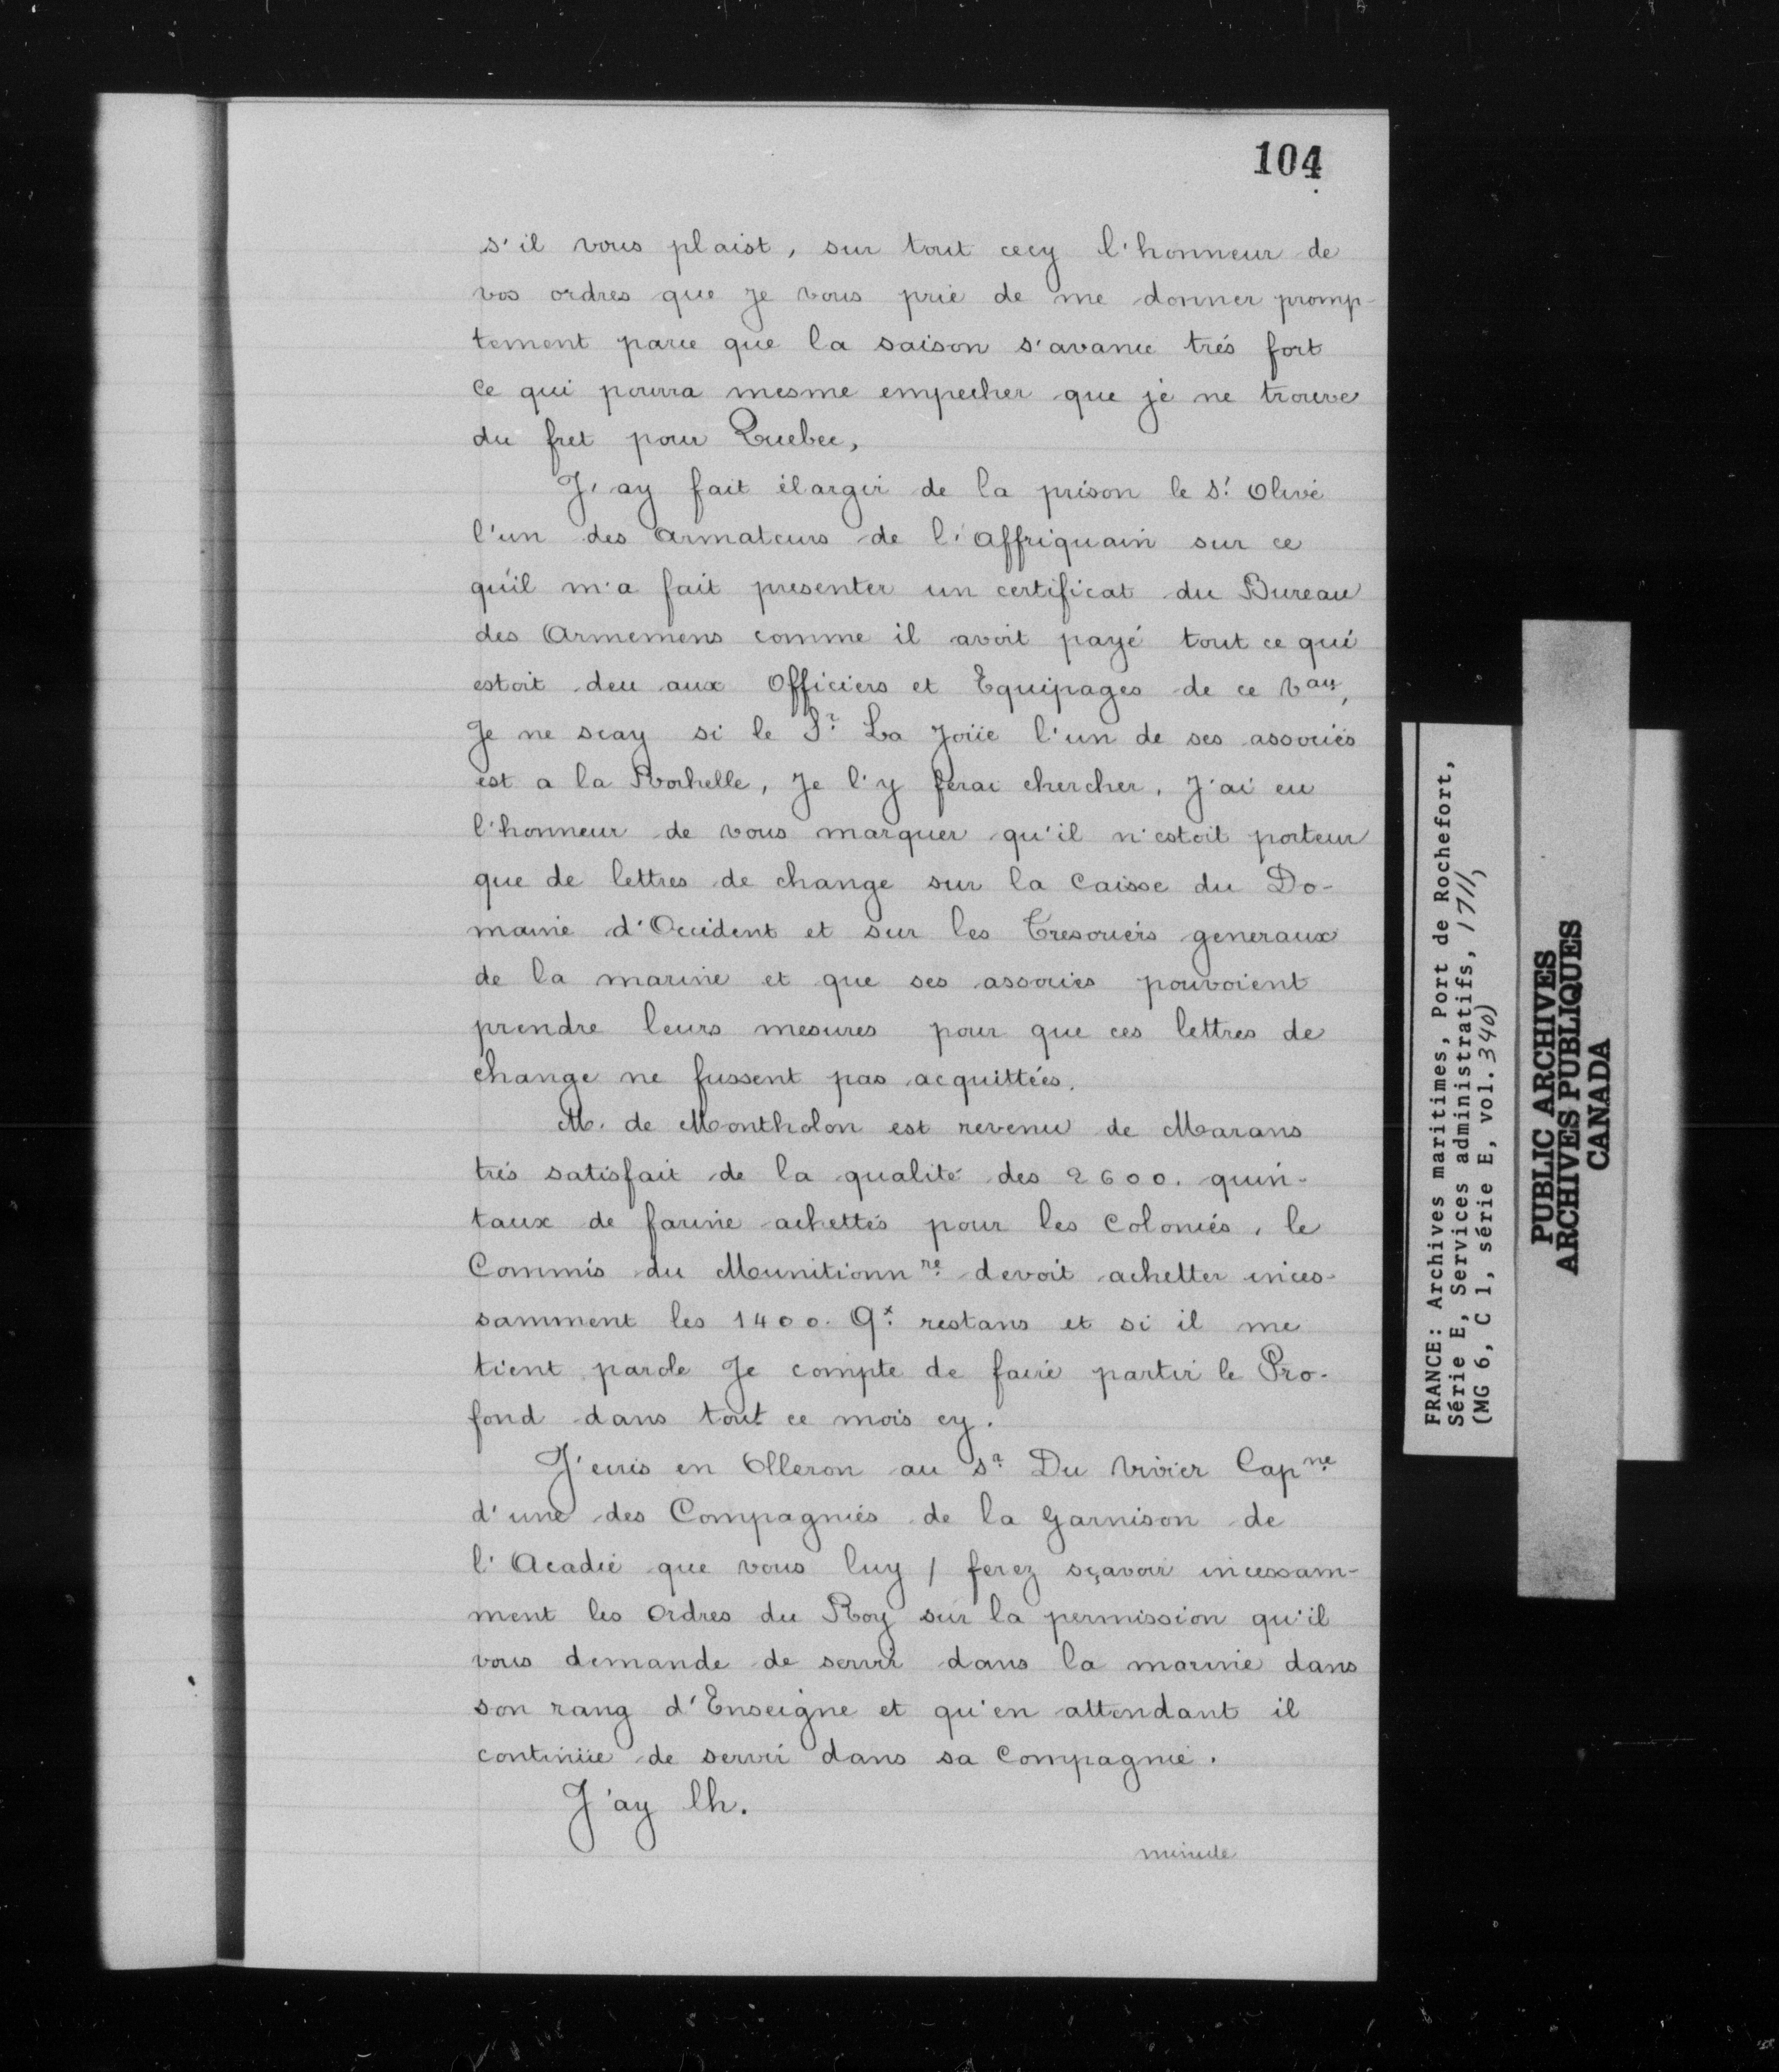 104
s'il vous plaist, sur tout cecy l'honneur de
vos ordres que je vous prie de me donner promp-
tement parce que la saison s'avance trés fort
ce qui pourra mesme empecher que je ne trouve
du fret pour Quebec,
J'ay fait élargir de la prison le Sr Olivé
l'un des Armateurs de l'Affriquain sur ce
qu'il m'a fait presenter un certificat du Bureau
des Armemens comme il avoit payé tout ce qui
estoit deu aux Officiers et Equipages de ce Vau,
Je ne scay si le Sr La Joüe l'un de ses associés
est a la Rochelle, Je l'y ferai chercher. J'ai eu
l'honneur de vous marquer qu'il n'estoit porteur
que de lettres de change sur la Caisse du Do-
maine d'Occident et sur les Tresoriers generaux
de la marine et que ses associés pouvoient
prendre leurs mesures pour que ces lettres de
change ne fussent pas acquittées.
M. de Montholon est revenu de Marans
trés satisfait de la qualité des 2600. quin-
taux de farine achettés pour les Colonies, le
Commis du Munitionnre devoit achetter inces-
samment les 1400. Qx restans et si il me
tient parole Je compte de faire partir le Pro-
fond dans tout ce mois cy.
J'ecris en Olleron au Sr Du Vivier Capne
d'une des Compagnies de la Garnison de
l'Acadie que vous luy / ferez sçavoir incessam-
ment les Ordres du Roy sur la permission qu'il
vous demande de servir dans la marine dans
son rang d'Enseigne et qu'en attendant il
continüe de servir dans sa Compagnie.
J'ay lh.
minute
FRANCE: Archives maritimes, Port de Rochefort,
Série E, Services administratifs, 1711,
(MG 6, C 1, série E, vol. 340)
PUBLIC ARCHIVES
ARCHIVES PUBLIQUES
CANADA